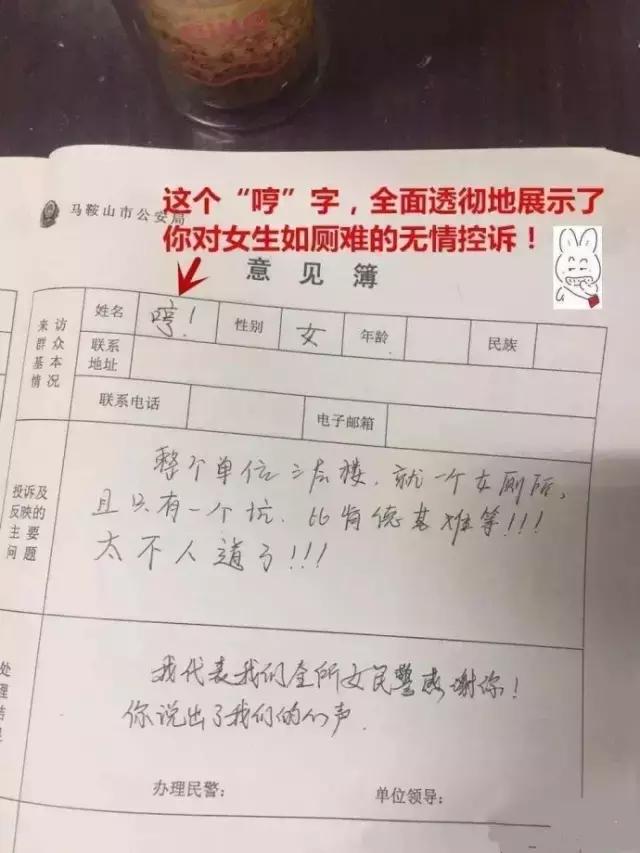 这个“哼”字，全面透彻地展示了
你对女生如厕难的无情控诉！
马鞍山市公安局
意见簿
来访群众基本情况
姓名 哼！ 性别 女 年龄 民族
联系地址
联系电话 电子邮箱
投诉及反映的主要问题
整个单位三层楼，就一个女厕所，
且只有一个坑．比肯德基难等！！！
太不人道了！！！
处理结果
我代表我们全所女民警感谢你！
你说出了我们的心声．
办理民警： 单位领导：